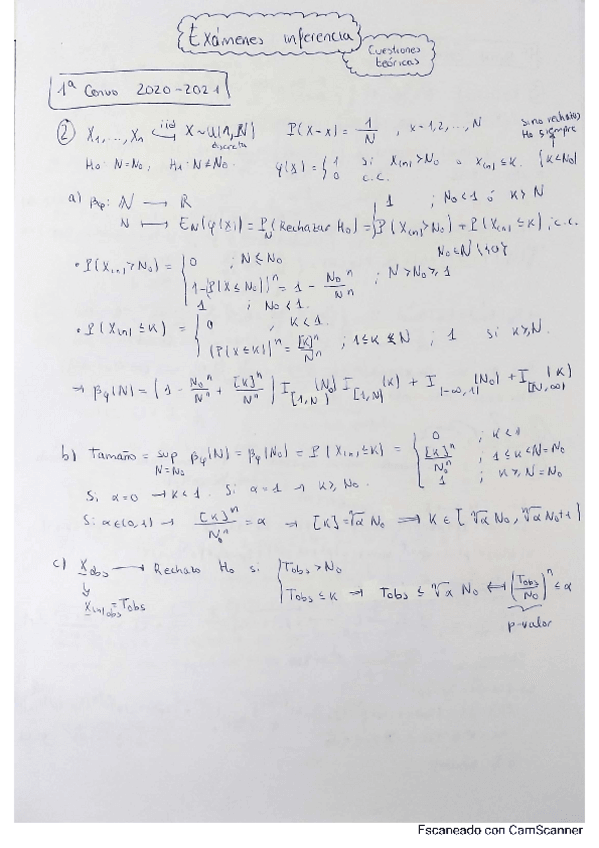 Exámenes inferencia
Cuestiones teóricas
1ª Convo 2020-2021
② X₁,...,Xₙ iid X~U(1,N) discreta P(X=x) = 1/N , x=1,2,...,N
sino rechazas H₀ siempre
H₀: N=N₀, H₁: N≠N₀. φ(x) = { 1 si X₍ₙ₎>N₀ o X₍ₙ₎≤K. (K<N₀)
0 c.c.
a) βφ: ℕ → ℝ
N ↦ E_N(φ(X)) = P_N(Rechazar H₀) = { 1 ; N₀<1 ó K≥N
P(X₍ₙ₎>N₀) + P(X₍ₙ₎≤K) ; c.c.
• P(X₍ₙ₎>N₀) = { 0 ; N≤N₀
1-(P(X≤N₀))ⁿ = 1 - N₀ⁿ/Nⁿ ; N>N₀≥1
1 ; N₀<1.
• P(X₍ₙ₎≤K) = { 0 , K<1.
(P(X≤K))ⁿ = [K]ⁿ/Nⁿ ; 1≤K≤N ; 1 si K≥N.
→ βφ(N) = (1 - N₀ⁿ/Nⁿ + [K]ⁿ/Nⁿ) I_[1,N)(N₀) I_[1,N)(K) + I_(-∞,1)(N₀) + I_[N,∞)(K)
b) Tamaño = sup_{N=N₀} βφ(N) = βφ(N₀) = P(X₍ₙ₎≤K) = { 0 ; K<1
[K]ⁿ/N₀ⁿ ; 1≤K<N=N₀
1 ; K≥N=N₀
Si α=0 → K<1. Si α=1 → K≥N₀.
Si α∈(0,1) → [K]ⁿ/N₀ⁿ = α → [K]=ⁿ√α N₀ ⟹ K∈[ⁿ√α N₀, ⁿ√α N₀+1)
c) X_obs → Rechazo H₀ si { T_obs>N₀
X₍ₙ₎obs = T_obs
T_obs≤K ⟹ T_obs ≤ ⁿ√α N₀ ⟷ (T_obs/N₀)ⁿ ≤ α
p-valor
Escaneado con CamScanner